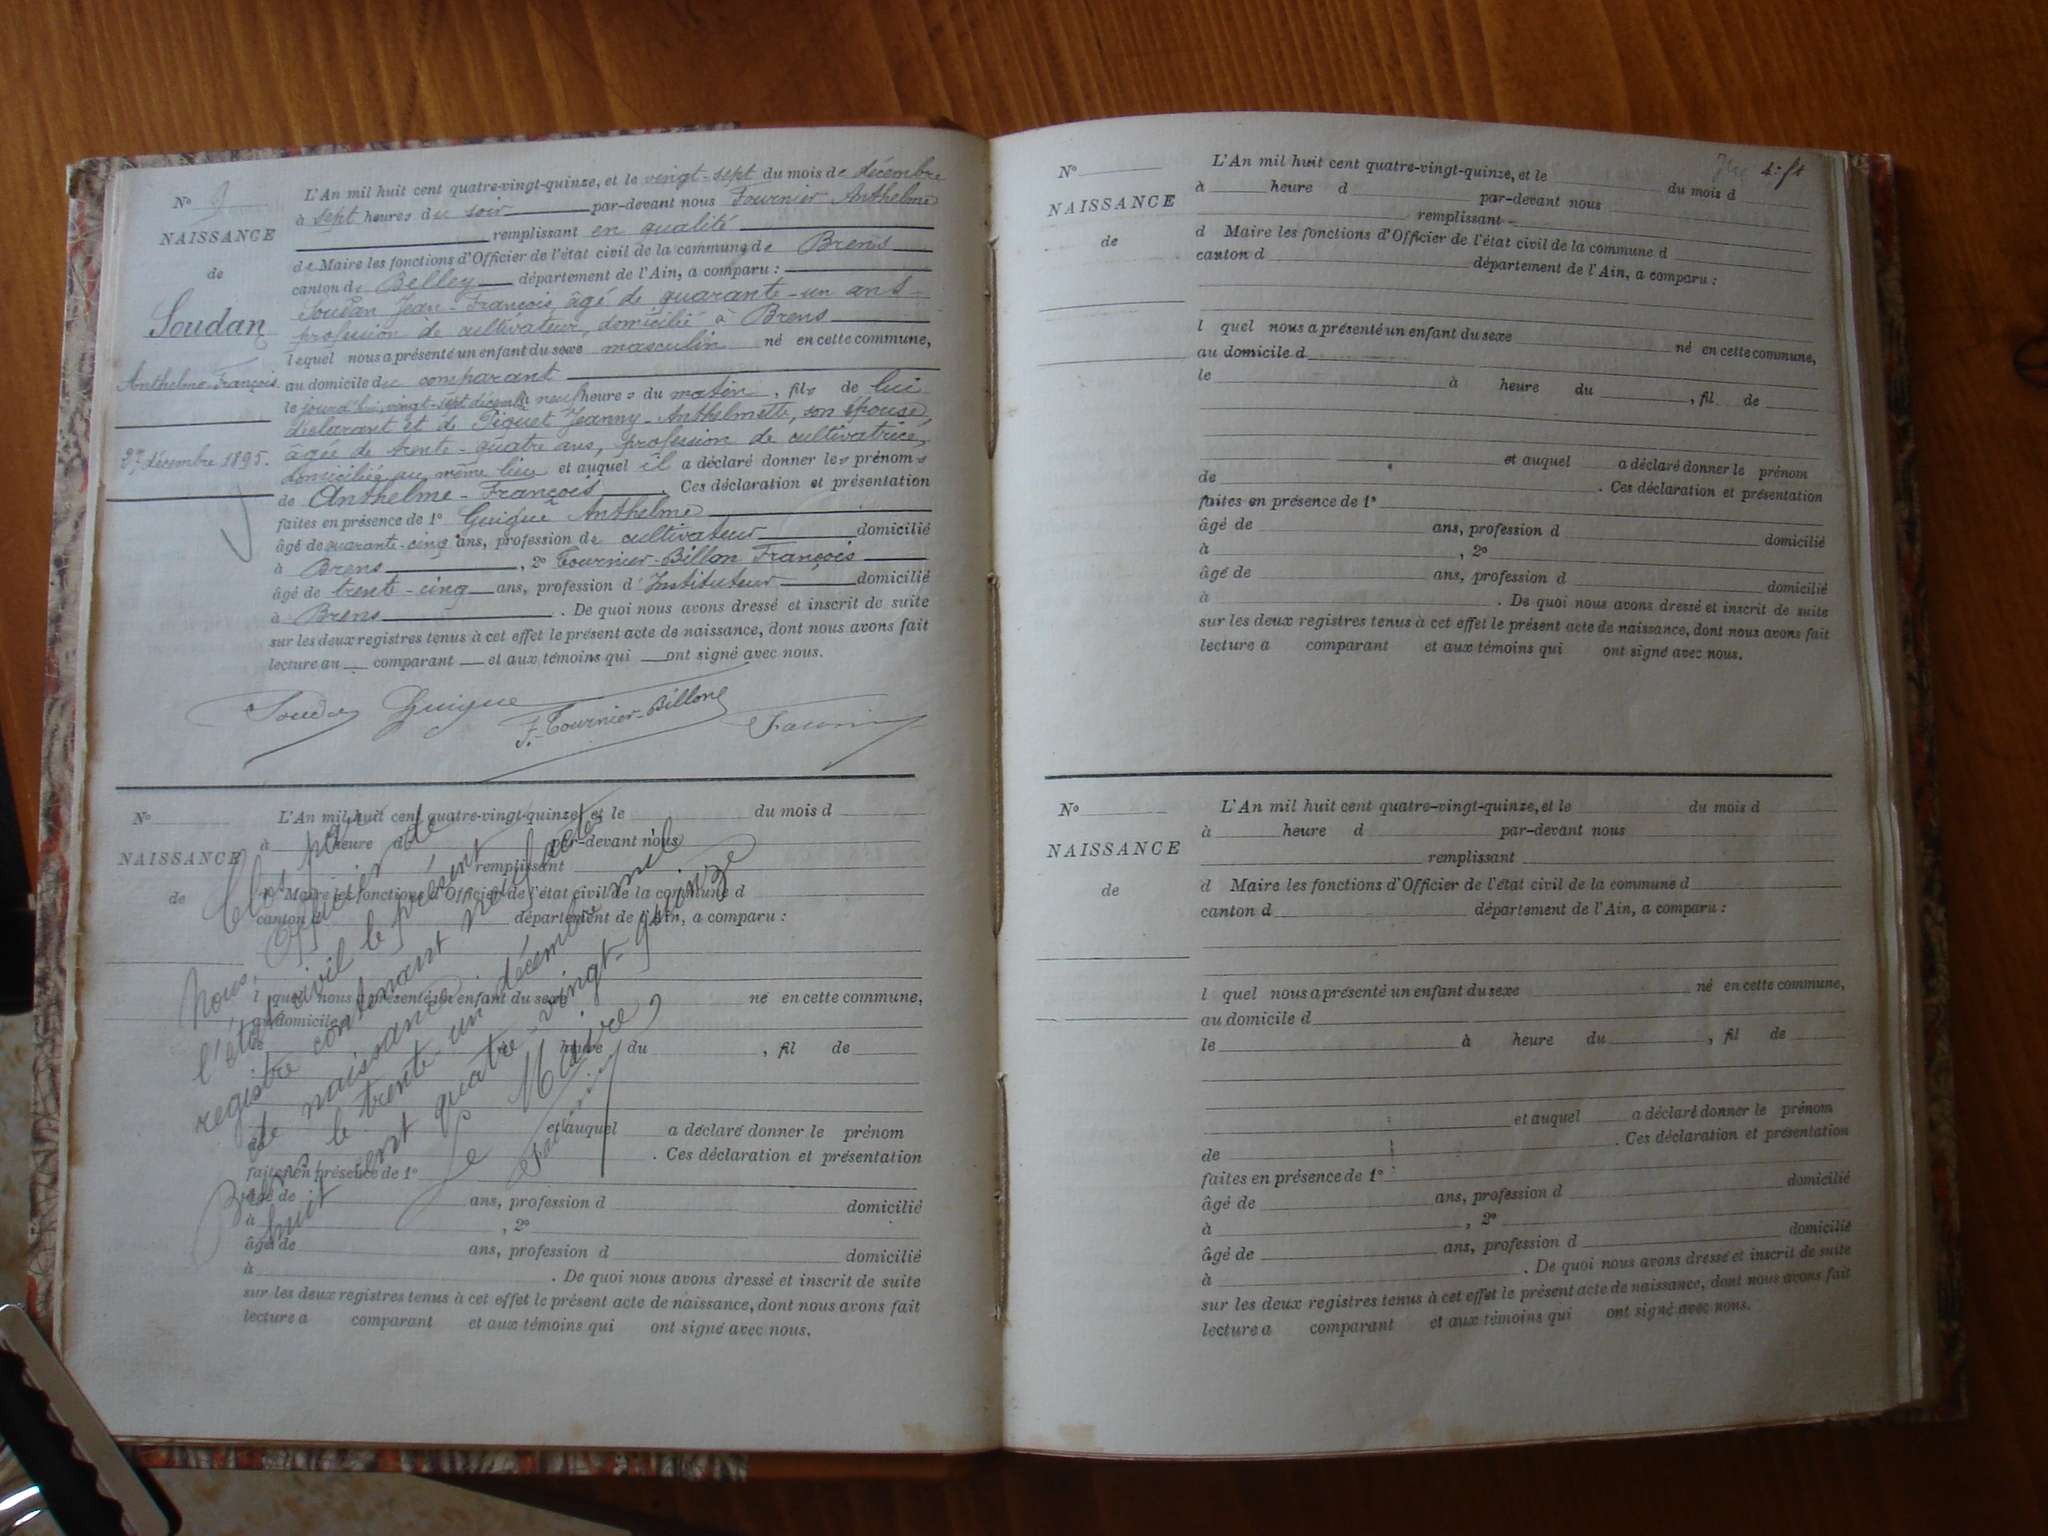 N° 9
NAISSANCE
de
Soudan
Anthelme-François
27 décembre 1895.
L'An mil huit cent quatre-vingt-quinze, et le vingt-sept du mois de décembre
à sept heures du soir par-devant nous Fournier Anthelme
remplissant en qualité
de Maire les fonctions d'Officier de l'état civil de la commune de Brens
canton de Belley département de l'Ain, a comparu :
Soudan Jean-François, âgé de quarante-un ans
profession de cultivateur, domicilié à Brens
lequel nous a présenté un enfant du sexe masculin né en cette commune,
au domicile du comparant
le jourd'hui vingt-sept décembre à neuf heures du matin, fils de lui
déclarant et de Piquet Jeanny-Anthelmette, son épouse,
âgée de trente-quatre ans, profession de cultivatrice,
domiciliée au même lieu et auquel il a déclaré donner les prénoms
de Anthelme-François. Ces déclaration et présentation
faites en présence de 1° Guigue Anthelme
âgé de quarante-cinq ans, profession de cultivateur domicilié
à Brens, 2° Tournier-Billon François
âgé de trente-cinq ans, profession d'Instituteur domicilié
à Brens. De quoi nous avons dressé et inscrit de suite
sur les deux registres tenus à cet effet le présent acte de naissance, dont nous avons fait
lecture au comparant et aux témoins qui ont signé avec nous.
Soudan Guigue F. Tournier-Billon Fournier
N°
NAISSANCE
de
L'An mil huit cent quatre-vingt-quinze, et le du mois d
à heure d par-devant nous
remplissant
d Maire les fonctions d'Officier de l'état civil de la commune d
canton d département de l'Ain, a comparu :
l quel nous a présenté un enfant du sexe né en cette commune,
au domicile
le heure du , fil de
et auquel a déclaré donner le prénom
de . Ces déclaration et présentation
faites en présence de 1°
âgé de ans, profession d domicilié
à , 2°
âgé de ans, profession d domicilié
à . De quoi nous avons dressé et inscrit de suite
sur les deux registres tenus à cet effet le présent acte de naissance, dont nous avons fait
lecture a comparant et aux témoins qui ont signé avec nous.
Clos par
Nous, Officier de
l'état civil le présent
registre contenant neuf actes
de naissance
Brens, le trente-un décembre mil
huit cent quatre-vingt-quinze
Le Maire,
Fournier
N°
NAISSANCE
de
L'An mil huit cent quatre-vingt-quinze, et le du mois d
à heure d par-devant nous
remplissant
d Maire les fonctions d'Officier de l'état civil de la commune d
canton d département de l'Ain, a comparu :
l quel nous a présenté un enfant du sexe né en cette commune,
au domicile d
le à heure du , fil de
et auquel a déclaré donner le prénom
de . Ces déclaration et présentation
faites en présence de 1°
âgé de ans, profession d domicilié
à , 2°
âgé de ans, profession d domicilié
à . De quoi nous avons dressé et inscrit de suite
sur les deux registres tenus à cet effet le présent acte de naissance, dont nous avons fait
lecture a comparant et aux témoins qui ont signé avec nous.
N°
NAISSANCE
de
L'An mil huit cent quatre-vingt-quinze, et le du mois d
à heure d par-devant nous
remplissant
d Maire les fonctions d'Officier de l'état civil de la commune d
canton d département de l'Ain, a comparu :
l quel nous a présenté un enfant du sexe né en cette commune,
au domicile d
le à heure du , fil de
et auquel a déclaré donner le prénom
de . Ces déclaration et présentation
faites en présence de 1°
âgé de ans, profession d domicilié
à , 2°
âgé de ans, profession d domicilié
à . De quoi nous avons dressé et inscrit de suite
sur les deux registres tenus à cet effet le présent acte de naissance, dont nous avons fait
lecture a comparant et aux témoins qui ont signé avec nous.